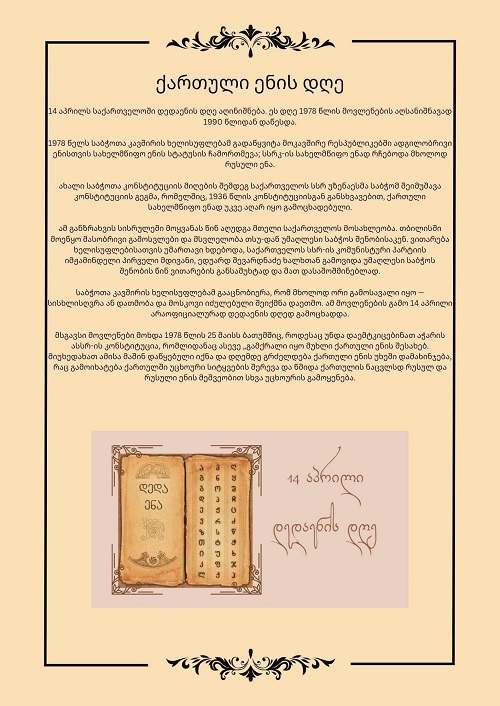 ქართული ენის დღე
14 აპრილს საქართველოში დედაენის დღე აღინიშნება. ეს დღე 1978 წლის მოვლენების აღსანიშნავად
1990 წლიდან დაწესდა.
1978 წელს საბჭოთა კავშირის ხელისუფლებამ გადაწყვიტა მოკავშირე რესპუბლიკებში ადგილობრივი
ენისთვის სახელმწიფო ენის სტატუსის ჩამორთმევა; სსრკ-ის სახელმწიფო ენად რჩებოდა მხოლოდ
რუსული ენა.
ახალი საბჭოთა კონსტიტუციის მიღების შემდეგ საქართველოს სსრ უზენაესმა საბჭომ შეიმუშავა
კონსტიტუციის გეგმა, რომელშიც, 1936 წლის კონსტიტუციისგან განსხვავებით, ქართული
სახელმწიფო ენად უკვე აღარ იყო გამოცხადებული.
ამ განზრახვის სისრულეში მოყვანას წინ აღუდგა მთელი საქართველოს მოსახლეობა. თბილისში
მოეწყო მასობრივი გამოსვლები და მსვლელობა თსუ-დან უმაღლესი საბჭოს შენობისაკენ. ვითარება
ხელისუფლებისათვის უმართავი ხდებოდა, საქართველოს სსრ-ის კომუნისტური პარტიის
იმჟამინდელი პირველი მდივანი, ედუარდ შევარდნაძე ხალხთან გამოვიდა უმაღლესი საბჭოს
შენობის წინ ვითარების განსამუხტად და მათ დასამოშმინებლად.
საბჭოთა კავშირის ხელისუფლებამ გააცნობიერა, რომ მხოლოდ ორი გამოსავალი იყო —
სისხლისღვრა ან დათმობა და მოსკოვი იძულებული შეიქმნა დაეთმო. ამ მოვლენების გამო 14 აპრილი
არაოფიციალურად დედაენის დღედ გამოცხადდა.
მსგავსი მოვლენები მოხდა 1978 წლის 25 მაისს ბათუმშიც, როდესაც უნდა დაემტკიცებინათ აჭარის
ასსრ-ის კონსტიტუცია, რომლიდანაც ასევე „გამქრალი იყო მუხლი ქართული ენის შესახებ.
მიუხედახათ ამისა მაშინ დაწყებული იქნა და დღემდე გრძელდება ქართული ენის უხეში დამახინჯება,
რაც გამოიხატება ქართულში უცხოური სიტყვების შერევა და წმიდა ქართულის ნაცვლსდ რუსულ და
რუსული ენის მეშვეობით სხვა უცხოურის გამოყენება.
დედა
ენა
ა მ ღ
ბ ნ ყ
გ ო შ
დ პ ჩ
ე ჟ ც
ვ რ ძ
ზ ს წ
თ ტ ჭ
ი უ ხ
კ ფ ჯ
ლ ქ ჰ
14 აპრილი
დედაენის დღე